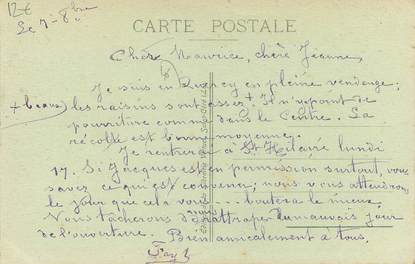 12€
Le 7-8bre
CARTE POSTALE
Cher Maurice, chère Jeanne,
Je suis en Quercy en pleine vendange;
les raisins sont assez + Il n'y a point de
+ beaux
pourriture comme dans le Centre. La
récolte est bonne moyenne.
Je rentrerai à St Hilaire lundi
17. Si Jacques est en permission surtout, vous
savez ce qui est convenu, nous vous attendrons
le jour que cela vous boutera le mieux.
Nous tâcherons de rattraper du mauvais jour
de l'ouverture. Bien amicalement à tous,